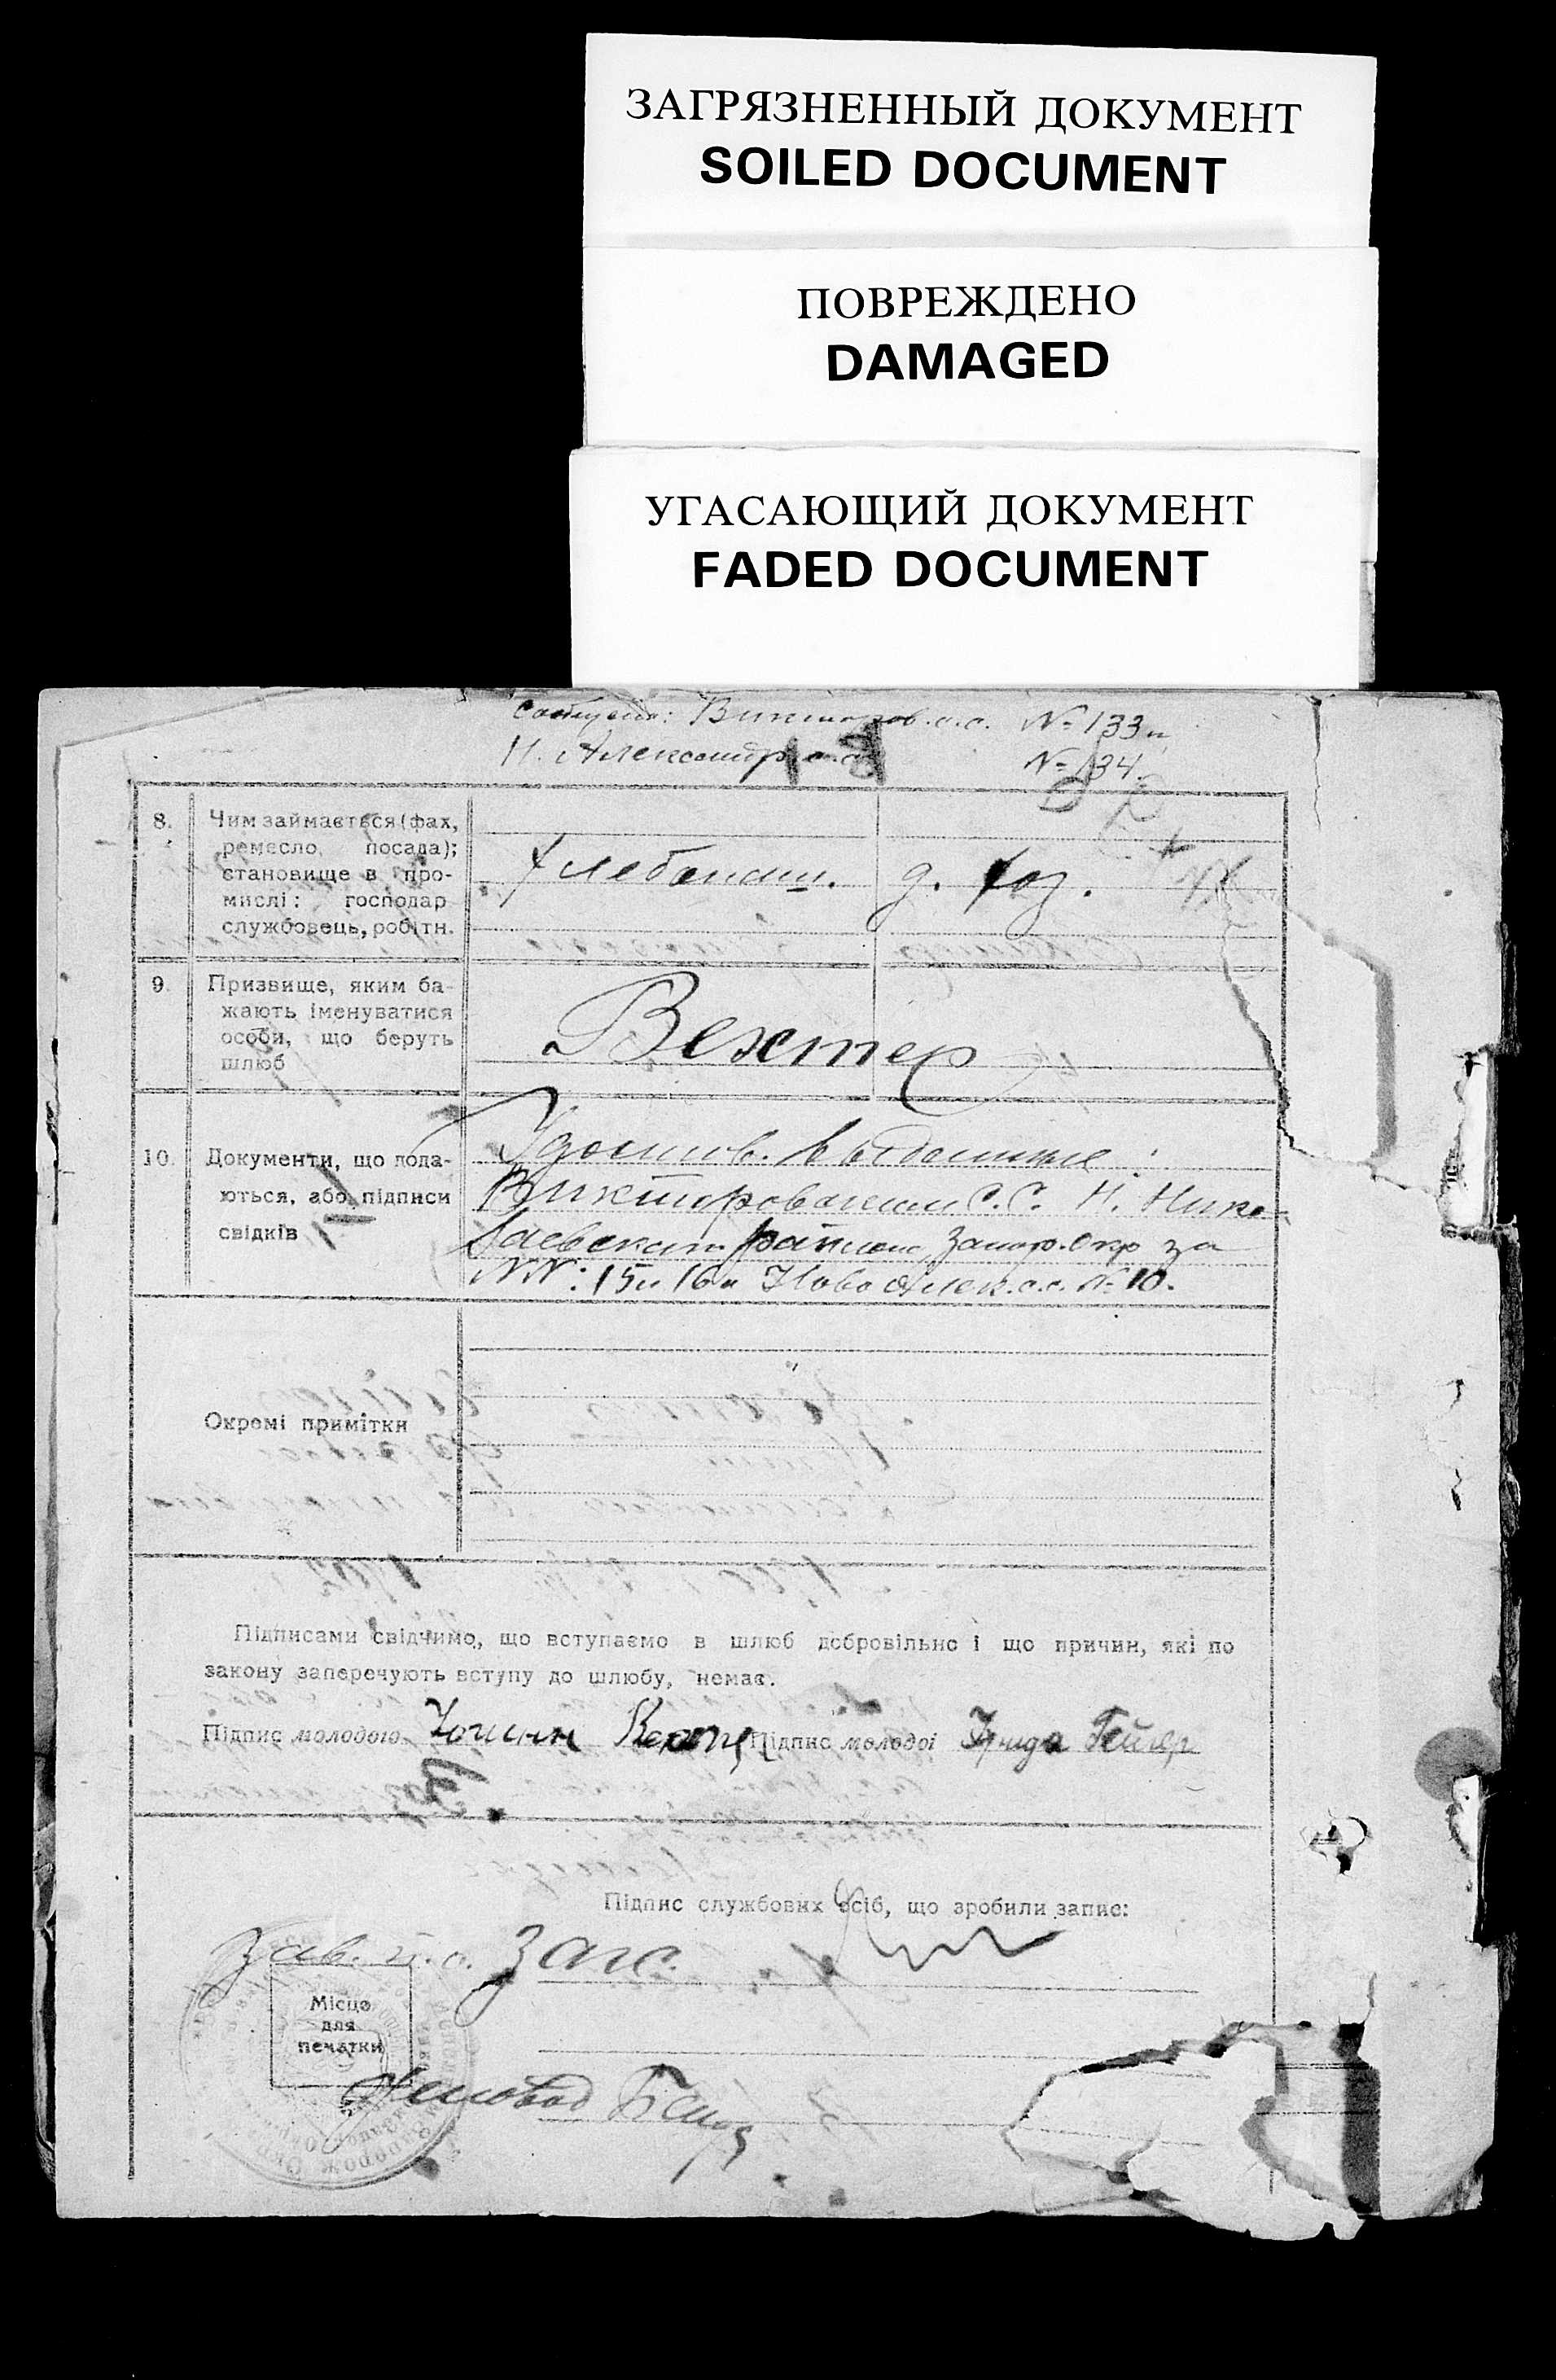 ЗАГРЯЗНЕННЫЙ ДОКУМЕНТ
SOILED DOCUMENT
ПОВРЕЖДЕНО
DAMAGED
УГАСАЮЩИЙ ДОКУМЕНТ
FADED DOCUMENT
Сообщено: Викторов.с.с. № 133 и
Н. Александр. с.с. № 134.
8. Чим займається (фах,
ремесло, посада);
становище в про-
мислі: господар
службовець, робітн.
Хлебопаш. д. хоз.
9. Призвище, яким ба-
жають іменуватися
особи, що беруть
шлюб
Вехтер
10. Документи, що пода-
ються, або підписи
свідків
Удостов. выданные:
Викторованским С.С. Н. Нико-
лаевскаго района, Запор. Окр за
NN: 15 и 16 и Ново Алек. с.с. № 10.
Окремі примітки
Підписами свідчимо, що вступаємо в шлюб добровільно і що причин, які по
закону заперечують вступу до шлюбу, немає.
Підпис молодого Іоганн Вехтер Підпис молодоі Фрида Гейер
Підпис службових осіб, що зробили запис:
Зав. п.о. Загс.
Місце
для
печатки